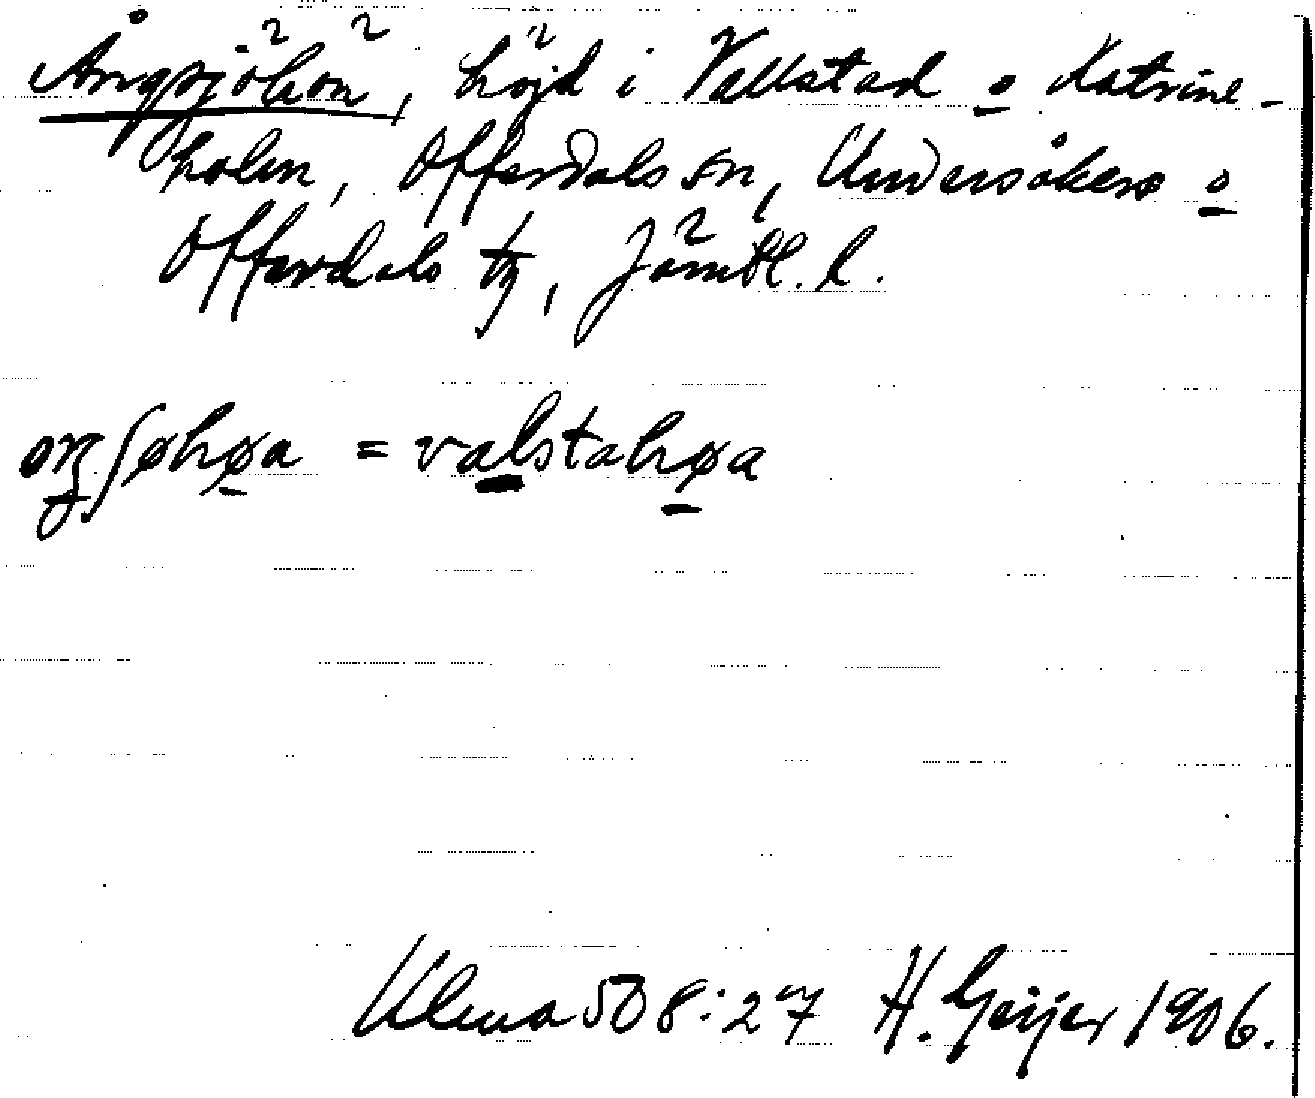 Ångsjöhön, höjd i Vallstad o Katrine-
holm, Offerdals sn, Undersåkers o
Offerdals tg, Jämtl. l.
oŋʃøhøa = valstahøa
Ulma 508:27 H. Geijer 1906.